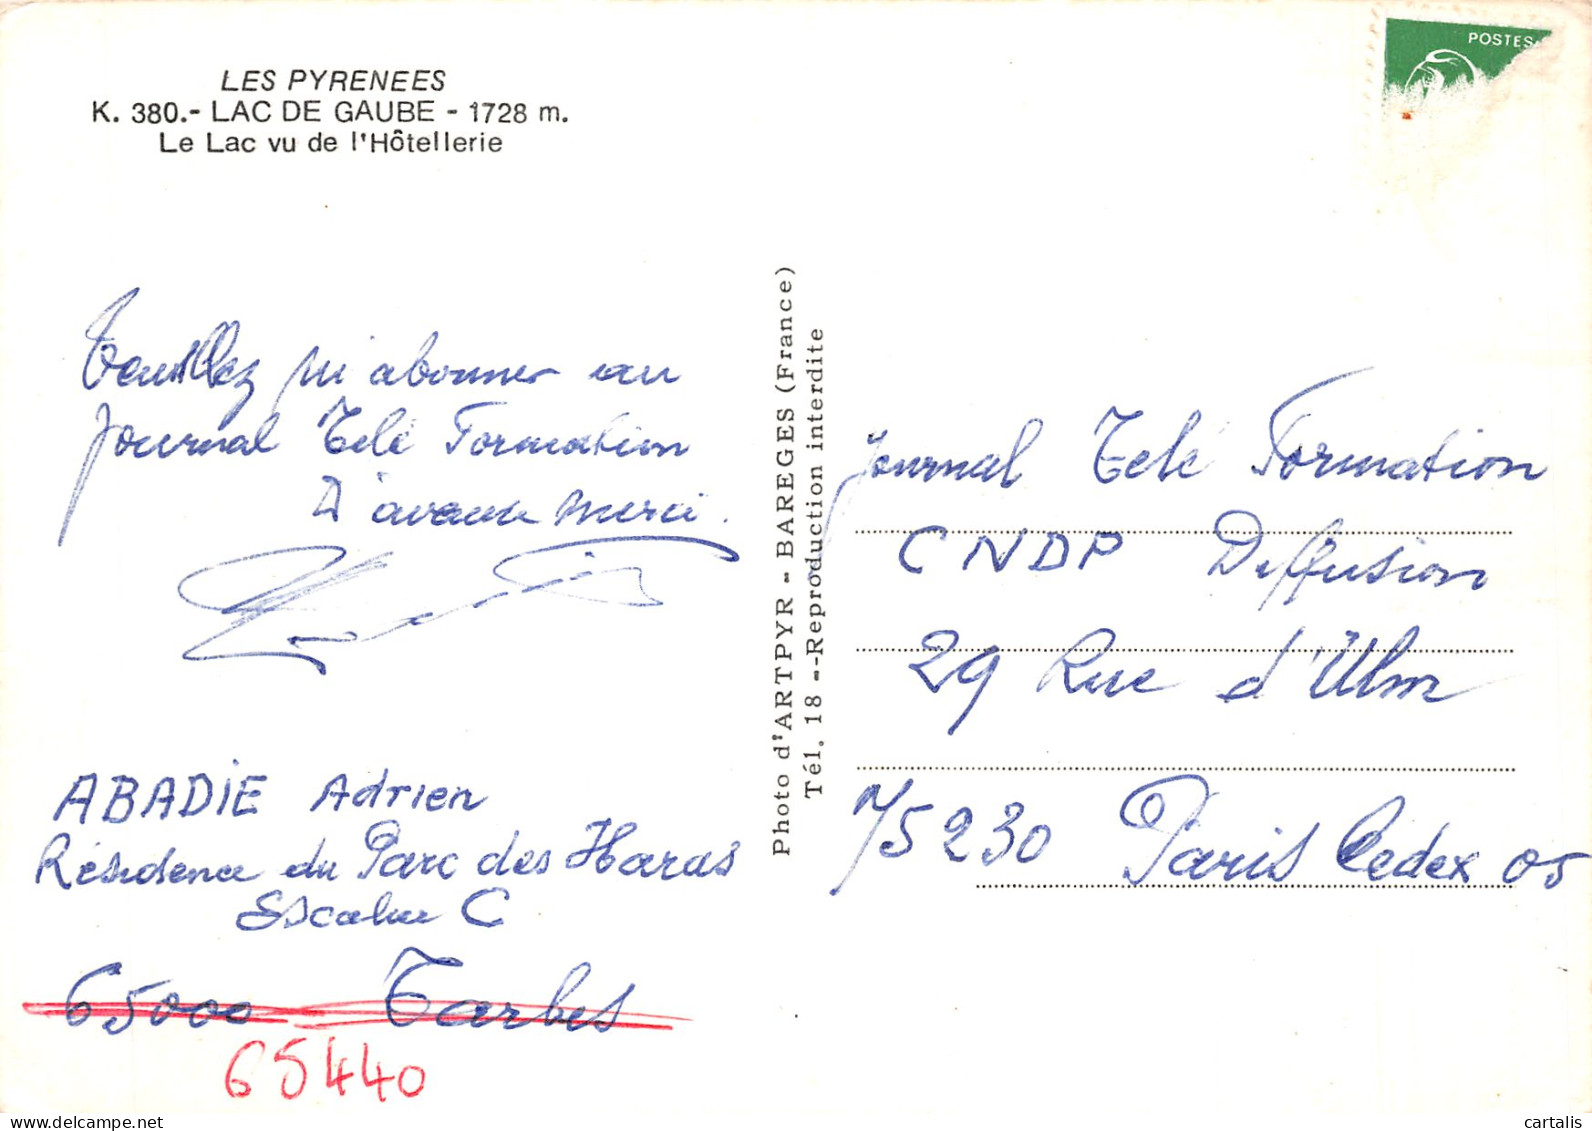 LES PYRENEES
K. 380.- LAC DE GAUBE - 1728 m.
Le Lac vu de l'Hôtellerie
POSTES
Veuillez m'abonner au
Journal Télé Formation
D'avance merci.
ABADIE Adrien
Résidence du Parc des Haras
Escalier C
65000 Tarbes
65440
Photo d'ARTPYR - BAREGES (France)
Tél. 18 --Reproduction interdite
Journal Télé Formation
CNDP Diffusion
29 Rue d'Ulm
75230 Paris Cedex 05
www.delcampe.net
cartalis